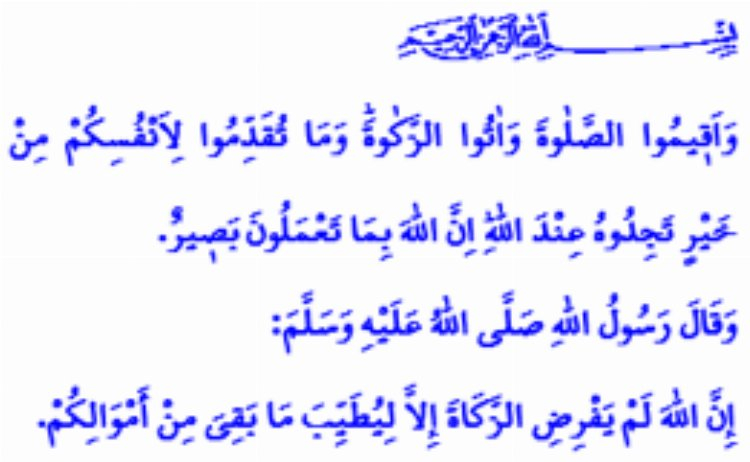 بِسْمِ اللّٰهِ الرَّحْمٰنِ الرَّحِيمِ
وَاَق۪يمُوا الصَّلٰوةَ وَاٰتُوا الزَّكٰوةَۜ وَمَا تُقَدِّمُوا لِاَنْفُسِكُمْ مِنْ
خَيْرٍ تَجِدُوهُ عِنْدَ اللّٰهِۜ اِنَّ اللّٰهَ بِمَا تَعْمَلُونَ بَص۪يرٌ.
وَقَالَ رَسُولُ اللّٰهِ صَلَّى اللّٰهُ عَلَيْهِ وَسَلَّمَ:
إِنَّ اللّٰهَ لَمْ يَفْرِضِ الزَّكَاةَ إِلاَّ لِيُطَيِّبَ مَا بَقِىَ مِنْ أَمْوَالِكُمْ.